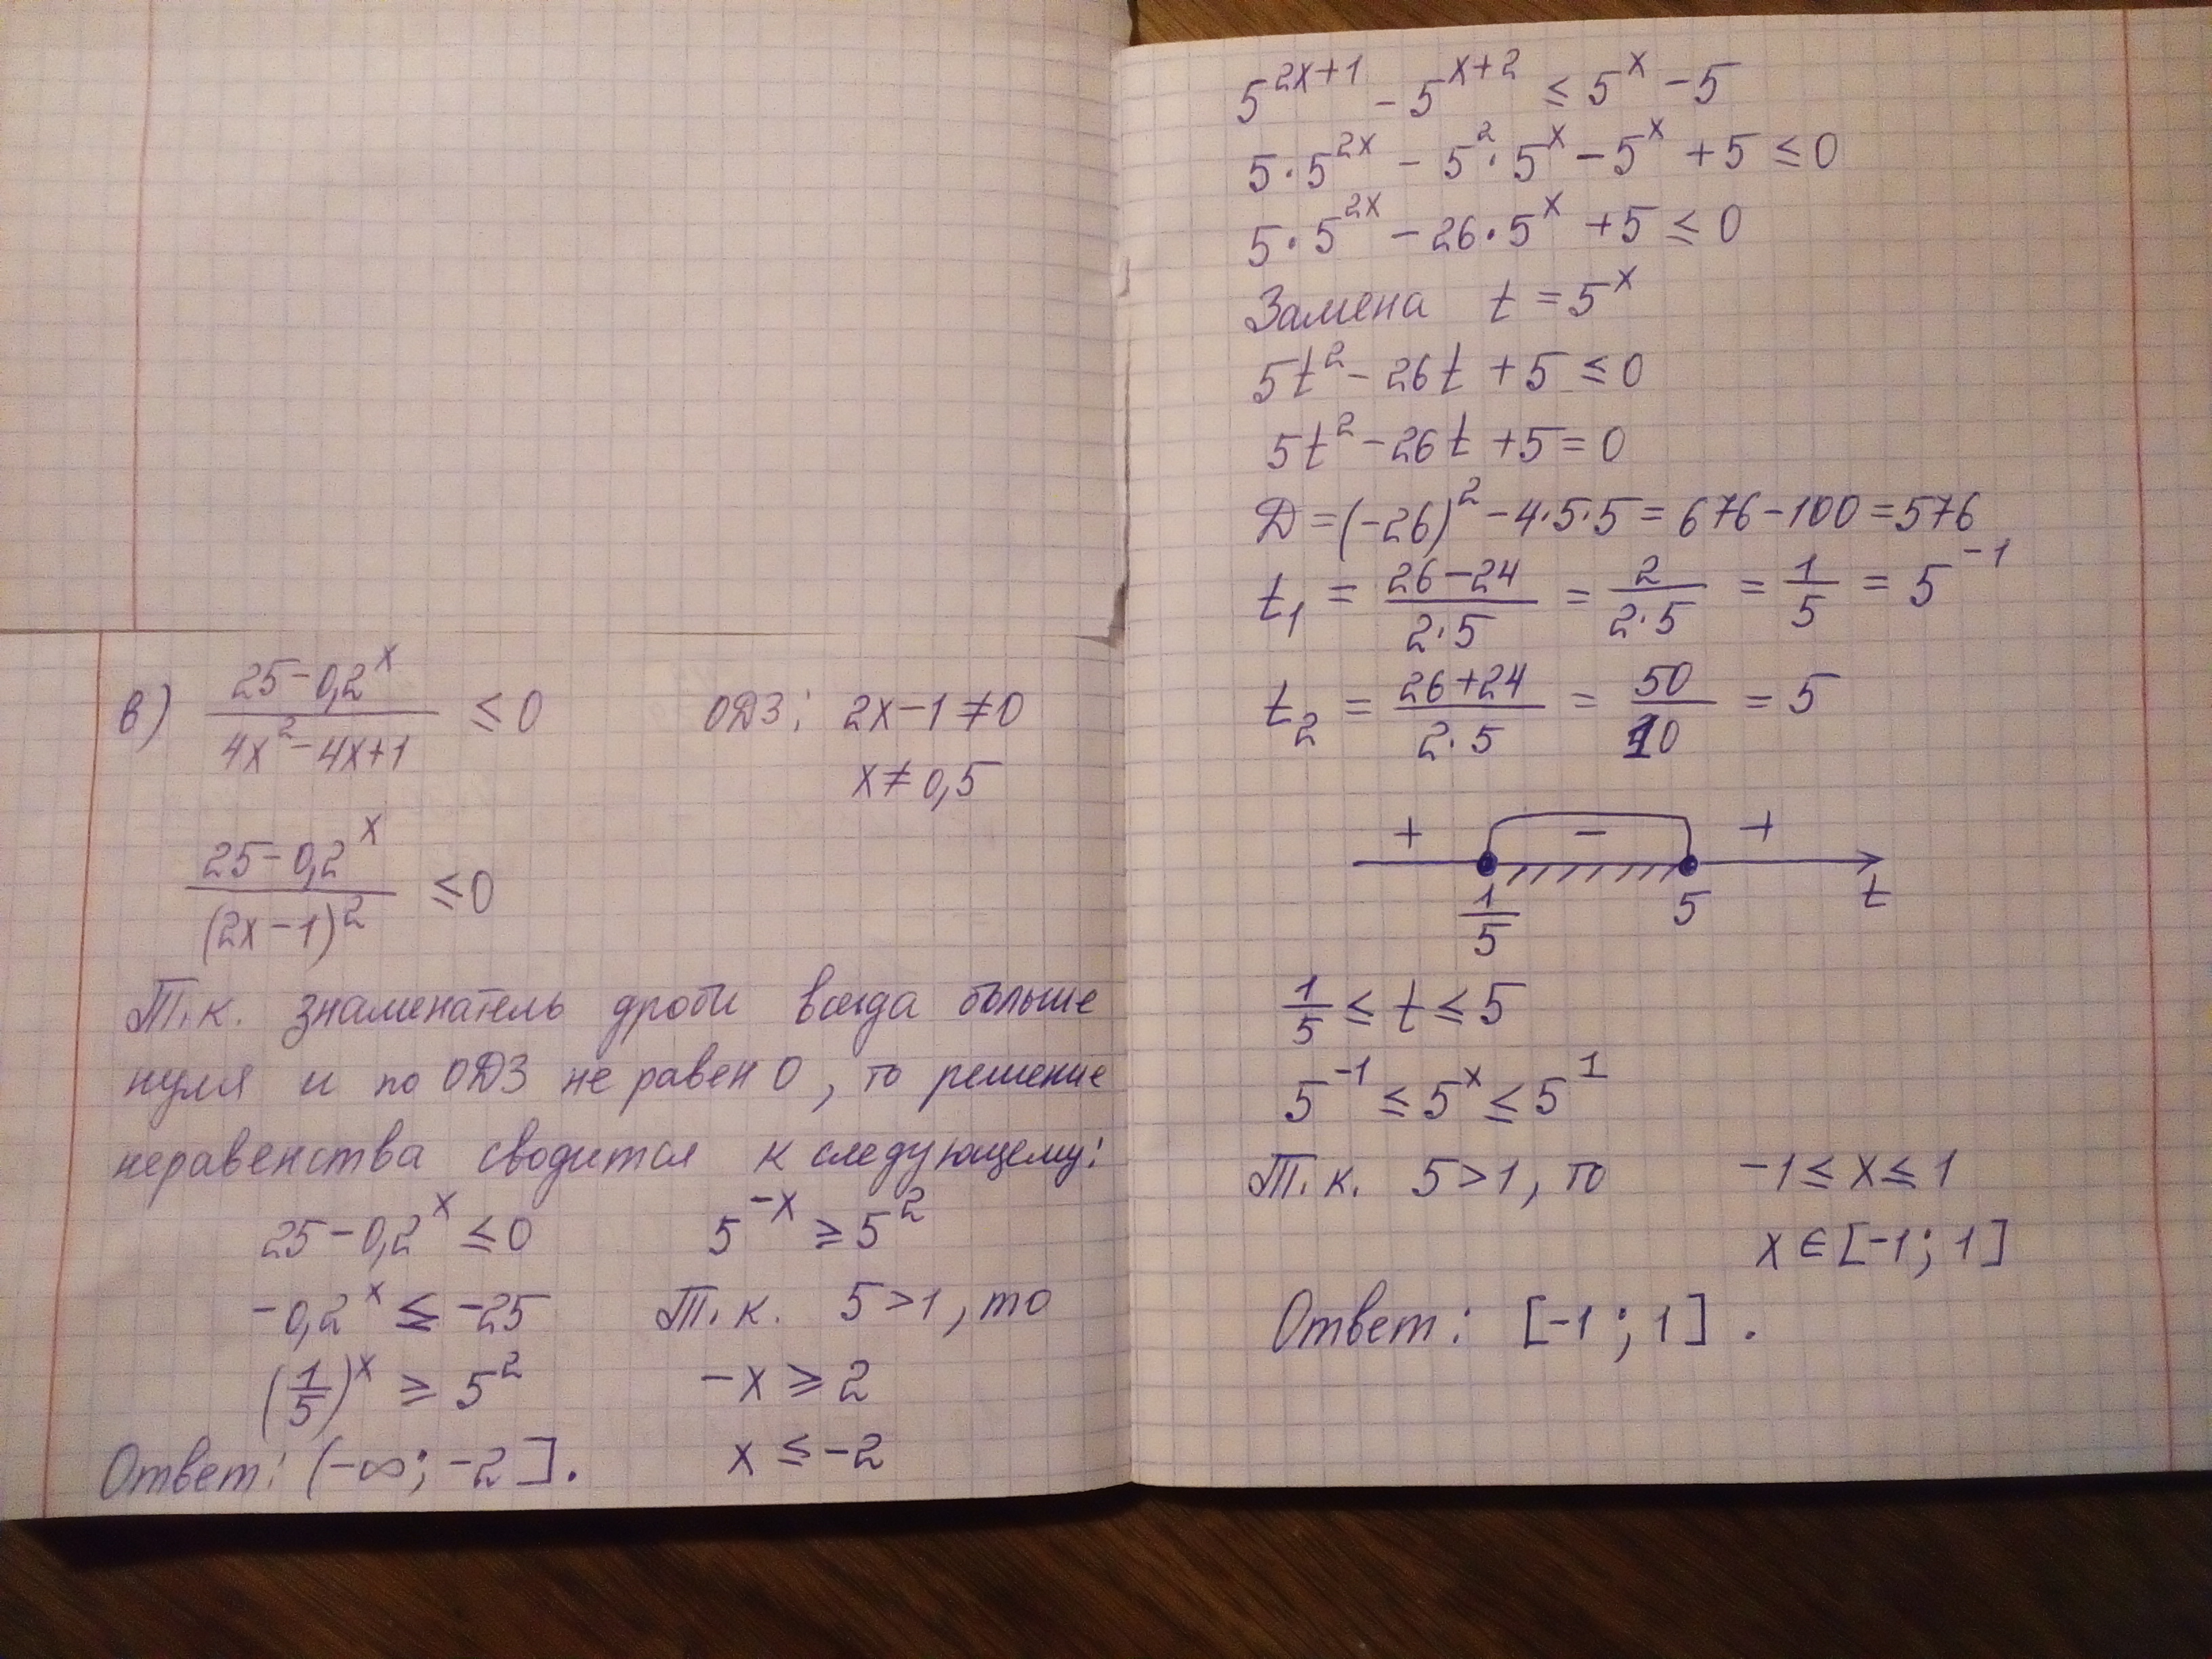 в) (25-0,2^x)/(4x²-4x+1) ≤ 0 ОДЗ: 2x-1≠0
x≠0,5
(25-0,2^x)/(2x-1)² ≤ 0
Т.к. знаменатель дроби всегда больше
нуля и по ОДЗ не равен 0, то решение
неравенства сводится к следующему:
25-0,2^x ≤ 0 5^(-x) ≥ 5²
-0,2^x ≤ -25 Т.к. 5>1, то
(1/5)^x ≥ 5² -x ≥ 2
Ответ: (-∞; -2]. x ≤ -2
5^(2x+1) - 5^(x+2) ≤ 5^x - 5
5·5^(2x) - 5²·5^x - 5^x + 5 ≤ 0
5·5^(2x) - 26·5^x + 5 ≤ 0
Замена t = 5^x
5t² - 26t + 5 ≤ 0
5t² - 26t + 5 = 0
Д = (-26)² - 4·5·5 = 676-100 = 576
t₁ = (26-24)/(2·5) = 2/(2·5) = 1/5 = 5^(-1)
t₂ = (26+24)/(2·5) = 50/10 = 5
+ - +
1/5 5 t
1/5 ≤ t ≤ 5
5^(-1) ≤ 5^x ≤ 5^1
Т.к. 5>1, то -1 ≤ x ≤ 1
x ∈ [-1; 1]
Ответ: [-1; 1].